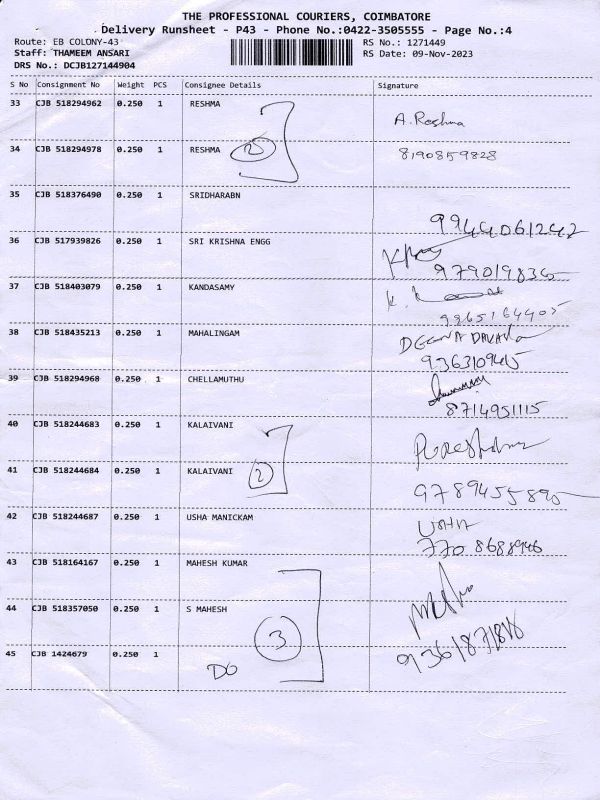 THE PROFESSIONAL COURIERS, COIMBATORE
Delivery Runsheet - P43 - Phone No.:0422-3505555 - Page No.:4
Route: EB COLONY-43 RS No.: 1271449
Staff: THAMEEM ANSARI RS Date: 09-Nov-2023
DRS No.: DCJB127144904
S No Consignment No Weight PCS Consignee Details Signature
33 CJB 518294962 0.250 1 RESHMA A.Reshma
34 CJB 518294978 0.250 1 RESHMA 2 8190859828
35 CJB 518376490 0.250 1 SRIDHARABN 9944061242
36 CJB 517939826 0.250 1 SRI KRISHNA ENGG
37 CJB 518403079 0.250 1 KANDASAMY
9865164405
38 CJB 518435213 0.250 1 MAHALINGAM DEENA DAYALA
39 CJB 518294968 0.250 1 CHELLAMUTHU
8714951115
40 CJB 518244683 0.250 1 KALAIVANI
41 CJB 518244684 0.250 1 KALAIVANI 2
42 CJB 518244687 0.250 1 USHA MANICKAM USHA
770 8688946
43 CJB 518164167 0.250 1 MAHESH KUMAR
44 CJB 518357050 0.250 1 S MAHESH 3
45 CJB 1424679 0.250 1 DO